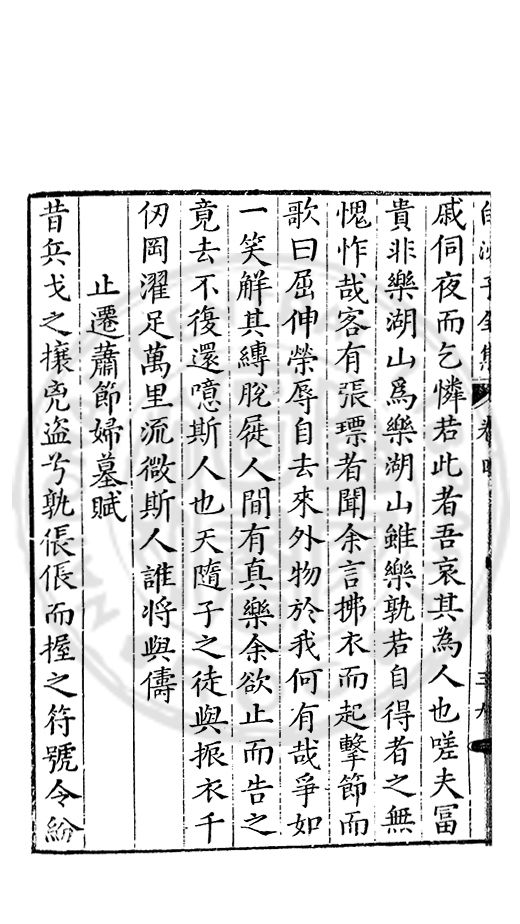 白沙子全集 卷四 三九
戚伺夜而乞憐若此者吾哀其為人也嗟夫冨
貴非樂湖山爲樂湖山雖樂孰若自得者之無
愧怍哉客有張瓢者聞余言拂衣而起擊節而
歌曰屈伸榮辱自去來外物於我何有哉爭如
一笑解其縛脫屣人間有真樂余欲止而告之
竟去不復還噫斯人也天隨子之徒與振衣千
仞岡濯足萬里流微斯人誰將與儔
止遷蕭節婦墓賦
昔兵戈之攘兇盜兮孰倀倀而握之符號令紛